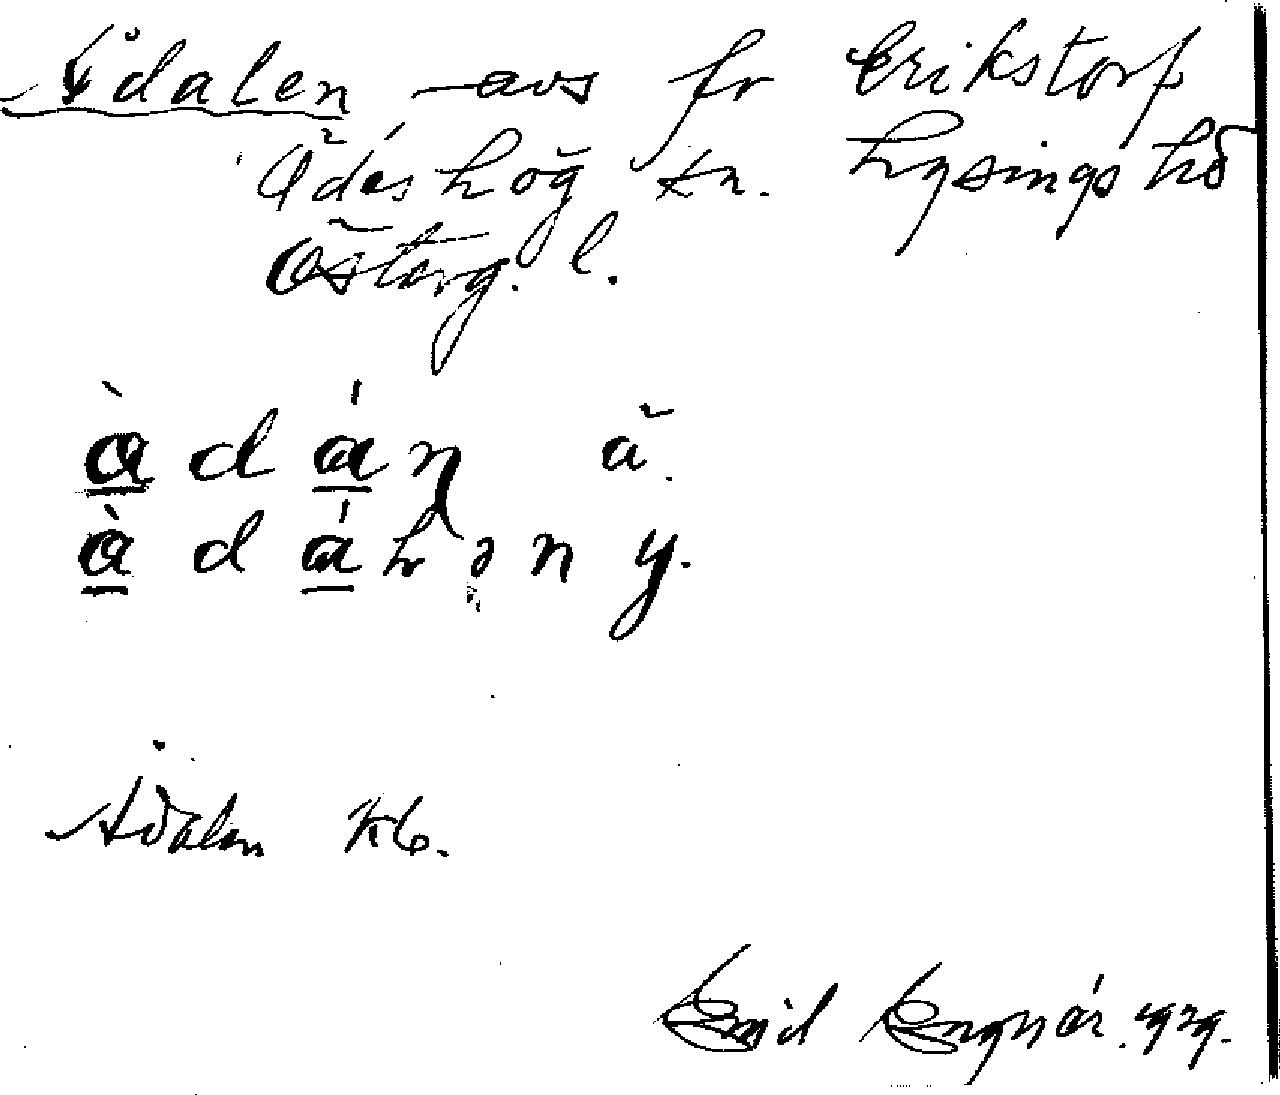 Ådalen avs fr Erikstorp
Ödeshög sn. Lysings hd
Österg. l.
àdán ä.
àdáhən y.
Ådalen kb.
Emil Engnér. 1929.